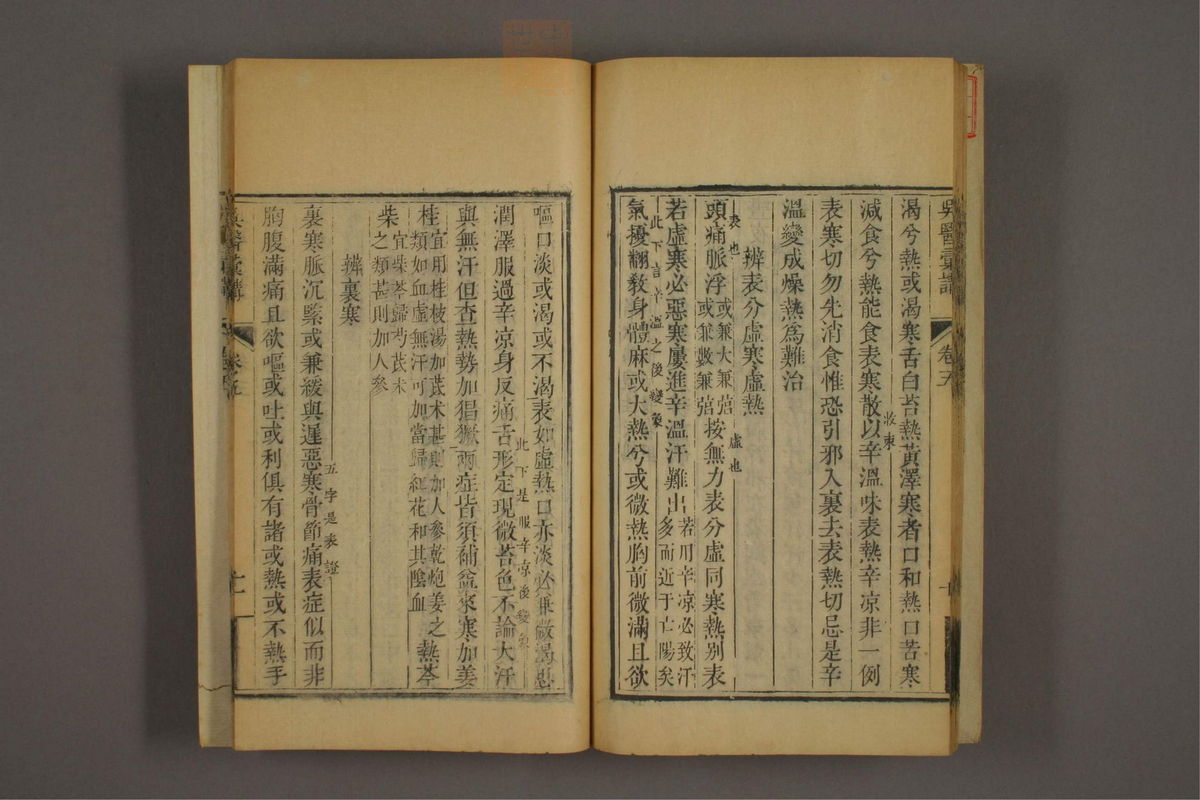 吳醫彙講 卷五
渴兮熱或渴寒舌白苔熱黃澤寒者口和熱口苦寒
減食兮熱能食表寒散以辛溫味表熱辛涼非一例
收束
表寒切勿先消食惟恐引邪入裏去表熱切忌是辛
溫變成燥熱爲難治
辨表分虛寒虛熱
表也 虛也
頭痛脈浮或兼大兼弦或兼數兼弦按無力表分虛同寒熱別表
若虛寒必惡寒屢進辛溫汗難出若用辛涼必致汗多而近于亡陽矣
此下言辛溫之後變象
氣擾翻敎身體麻或大熱兮或微熱胸前微滿且欲
嘔口淡或渴或不渴表如虛熱口亦淡必兼微渴思
此下是服辛涼後變象
潤澤服過辛涼身反痛舌形定現微苔色不論大汗
與無汗但查熱勢加猖獗兩症皆須補益來寒加姜
桂宜用桂枝湯加芪朮甚則加人參乾炮姜之類如血虛無汗可加當歸紅花和其陰血熱芩
柴宜柴芩歸芍芪朮之類甚則加人參
辨裏寒
五字是表證
裏寒脈沉緊或兼緩與遲惡寒骨節痛表症似而非
胸腹滿痛且欲嘔或吐或利俱有諸或熱或不熱手
吳醫彙講 卷五 十一